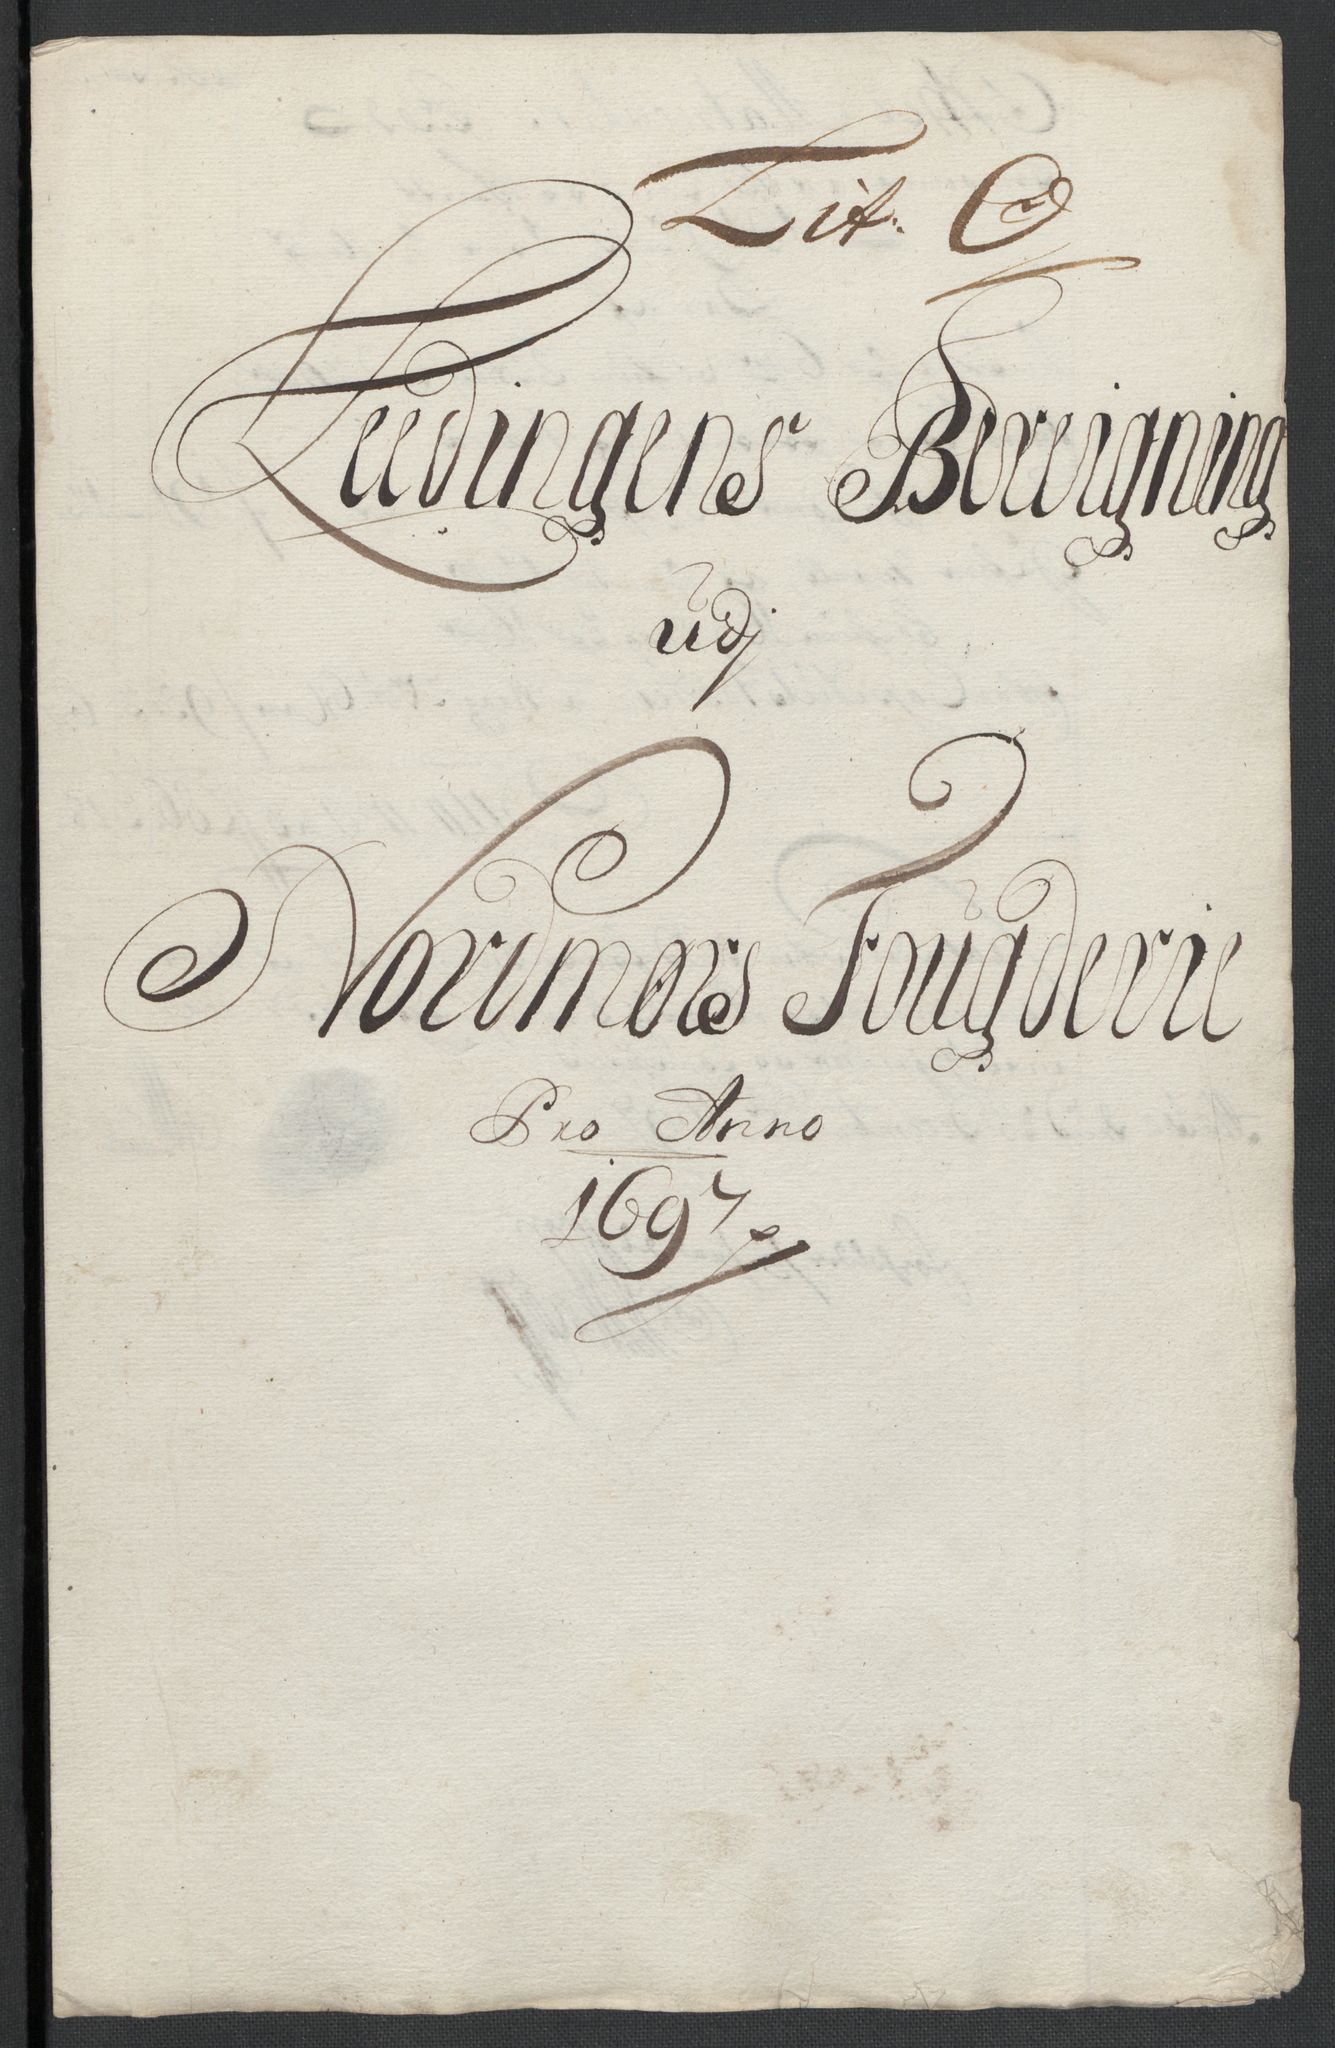 Lit. C
Leedingens Bereigning
udj
Nordmørs Fougderie
Pro Anno
1697